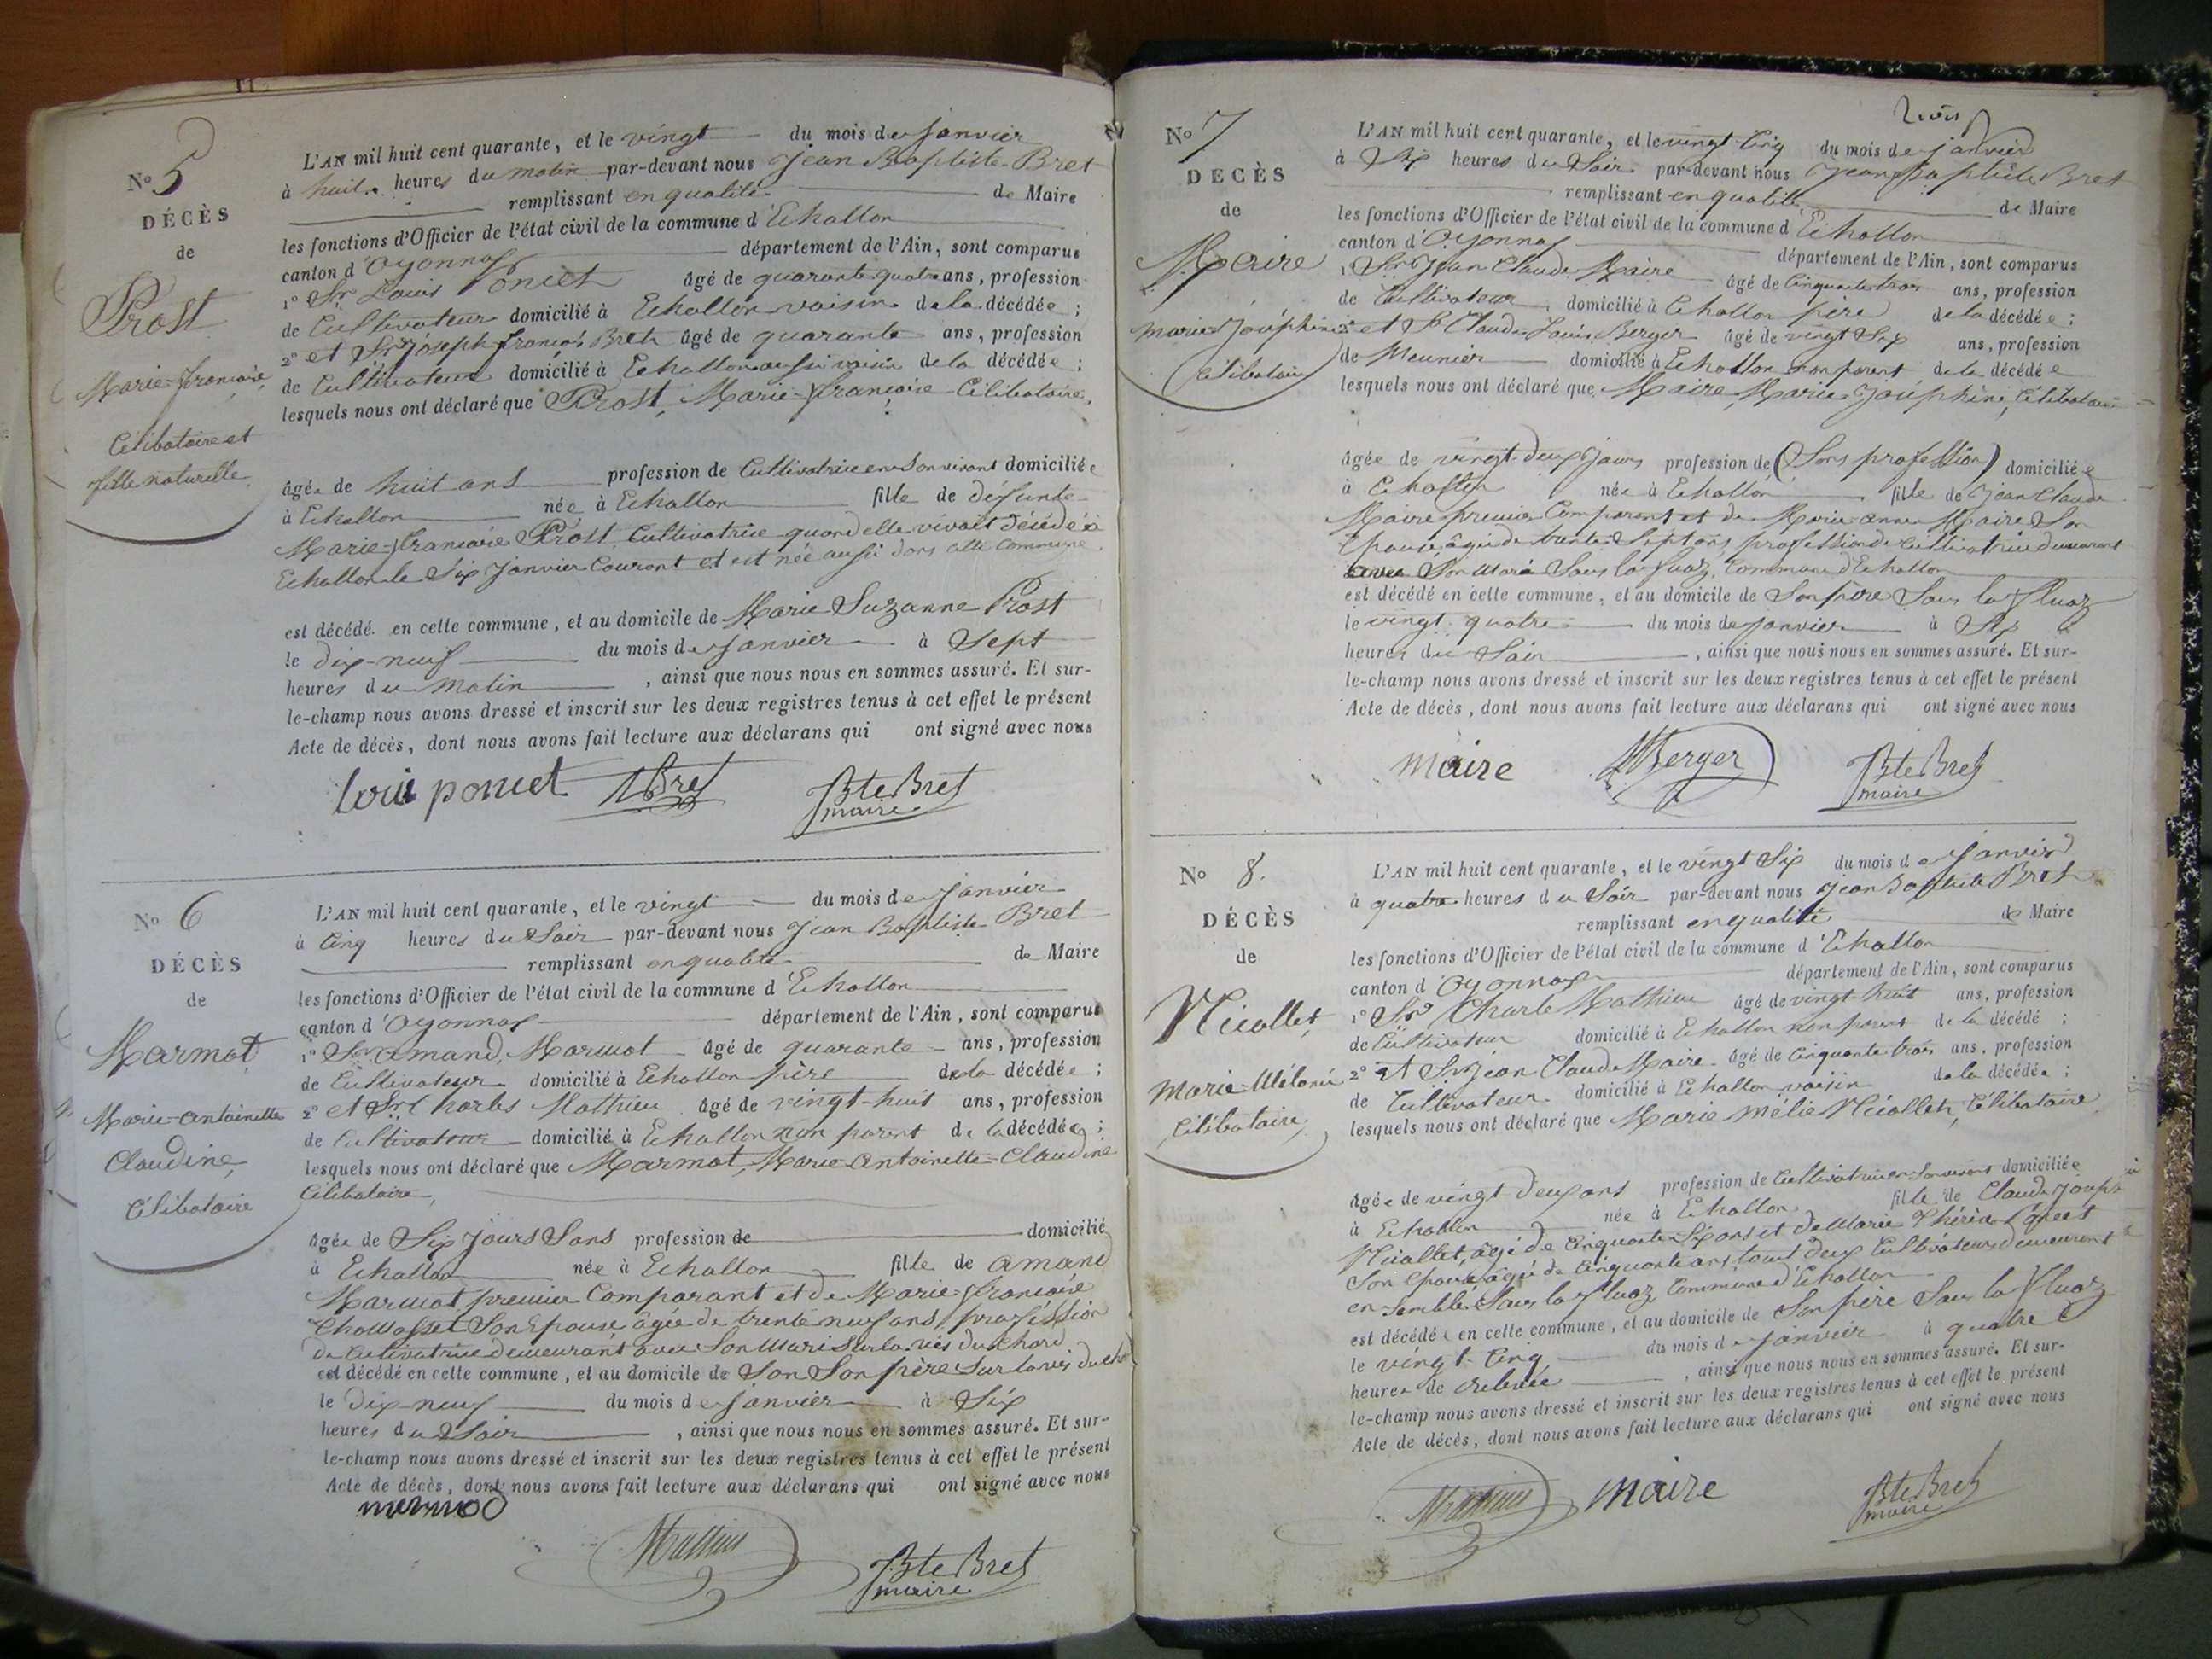 N° 5
DÉCÈS
de
Prost
Marie-françoise,
Célibataire et
fille naturelle.
L'AN mil huit cent quarante, et le vingt du mois de Janvier
à huit heures du matin par-devant nous Jean Baptiste Bret
remplissant en qualité de Maire
les fonctions d'Officier de l'état civil de la commune d'Echallon
canton d'Oyonnax département de l'Ain, sont comparus
1° Sr Louis Poncet âgé de quarante quatre ans, profession
de Cultivateur domicilié à Echallon voisin de la décédée ;
2° et Sr Joseph françois Bret âgé de quarante ans, profession
de Cultivateur domicilié à Echallon aussi voisin de la décédée ;
lesquels nous ont déclaré que Prost, Marie-françoise Célibataire,
âgée de huit ans profession de Cultivatrice en son vivant domiciliée
à Echallon née à Echallon fille de défunte
Marie-françoise Prost Cultivatrice quand elle vivait décédée à
Echallon le Six Janvier Courant et est née aussi dans cette Commune.
est décédé en cette commune, et au domicile de Marie Suzanne Prost
le dix-neuf du mois de Janvier à Sept
heures du matin , ainsi que nous nous en sommes assuré. Et sur-
le-champ nous avons dressé et inscrit sur les deux registres tenus à cet effet le présent
Acte de décès, dont nous avons fait lecture aux déclarans qui ont signé avec nous
loui poncet Bret JBte Bret
maire
N° 6
DÉCÈS
de
Marmot
Marie-antoinette
Claudine,
Célibataire
L'AN mil huit cent quarante, et le vingt du mois de Janvier
à Cinq heures du Soir par-devant nous Jean Baptiste Bret
remplissant en qualité de Maire
les fonctions d'Officier de l'état civil de la commune d'Echallon
canton d'Oyonnax département de l'Ain, sont comparus
1° Sr amand, Marmot âgé de quarante ans, profession
de Cultivateur domicilié à Echallon père de la décédée ;
2° et Sr Charles Mathieu âgé de vingt-huit ans, profession
de Cultivateur domicilié à Echallon non parent de la décédée ;
lesquels nous ont déclaré que Marmot, Marie-antoinette-Claudine
Célibataire,
âgée de Six jours Sans profession de domicilié
à Echallon née à Echallon fille de amand
Marmot premier Comparant et de Marie-françoise
Son Epouse âgée de trente neuf ans, profession
de Cultivatrice demeurant avec Son Mari Sur la vie du Chard
est décédé en cette commune, et au domicile de Son Son père Sur la vie du
le Dix-neuf du mois de Janvier à Six
heures du Soir , ainsi que nous nous en sommes assuré. Et sur-
le-champ nous avons dressé et inscrit sur les deux registres tenus à cet effet le présent
Acte de décès, dont nous avons fait lecture aux déclarans qui ont signé avec nous
mermod Mathieu JBte Bret
maire
trois
N° 7
DECÈS
de
Maire
Marie Joséphine
Célibataire
L'AN mil huit cent quarante, et le vingt Cinq du mois de Janvier
à Six heures du Soir par-devant nous Jean Baptiste Bret
remplissant en qualité de Maire
les fonctions d'Officier de l'état civil de la commune d'Echallon
canton d'Oyonnax département de l'Ain, sont comparus
1° Sr Jean Claude Maire âgé de Cinquante trois ans, profession
de Cultivateur domicilié à Echallon père de la décédée ;
2° et Sr Claude Louis Berger âgé de vingt Six ans, profession
de Meunier domicilié à Echallon non parent de la décédée
lesquels nous ont déclaré que Maire Marie Joséphine, Célibataire
âgée de vingt deux Jours profession de (Sans profession) domiciliée
à Echallon née à Echallon fille de Jean Claude
Maire premier Comparant et de Marie anne Maire Son
Epouse âgée de trente Sept ans profession de Cultivatrice demeurant
avec Son Mari Sous la fluaz, Commune d'Echallon
est décédé en cette commune, et au domicile de Son père Sous la fluaz
le vingt quatre du mois de Janvier à Six
heures du Soir , ainsi que nous nous en sommes assuré. Et sur-
le-champ nous avons dressé et inscrit sur les deux registres tenus à cet effet le présent
Acte de décès, dont nous avons fait lecture aux déclarans qui ont signé avec nous
maire Berger JBte Bret
maire
N° 8.
DÉCÈS
de
Nicollet
Marie-Mélanie
Célibataire,
L'AN mil huit cent quarante, et le vingt Six du mois de Janvier
à quatre heures du Soir par-devant nous Jean Baptiste Bret
remplissant en qualité de Maire
les fonctions d'Officier de l'état civil de la commune d'Echallon
canton d'Oyonnax département de l'Ain, sont comparus
1° Sr Charle Mathieu âgé de vingt huit ans, profession
de Cultivateur domicilié à Echallon non parent de la décédé ;
2° et Sr Jean Claude Maire âgé de Cinquante trois ans, profession
de Cultivateur domicilié à Echallon voisin de la décédée ;
lesquels nous ont déclaré que Marie Mélie Nicollet, Célibataire
âgée de vingt deux ans profession de Cultivatrice en Son vivant domiciliée
à Echallon née à Echallon fille de Claude Joseph
Nicollet, âgé de Cinquante Six ans et de Marie Thérèse
Son Epouse âgée de Cinquante ans tout deux Cultivateurs demeurant
ensemble Sous la fluaz Commune d'Echallon
est décédée en cette commune, et au domicile de Son père Sous la fluaz
le vingt-Cinq du mois de Janvier à quatre
heures de relevée , ainsi que nous nous en sommes assuré. Et sur-
le-champ nous avons dressé et inscrit sur les deux registres tenus à cet effet le présent
Acte de décès, dont nous avons fait lecture aux déclarans qui ont signé avec nous
Mathieu maire JBte Bret
maire